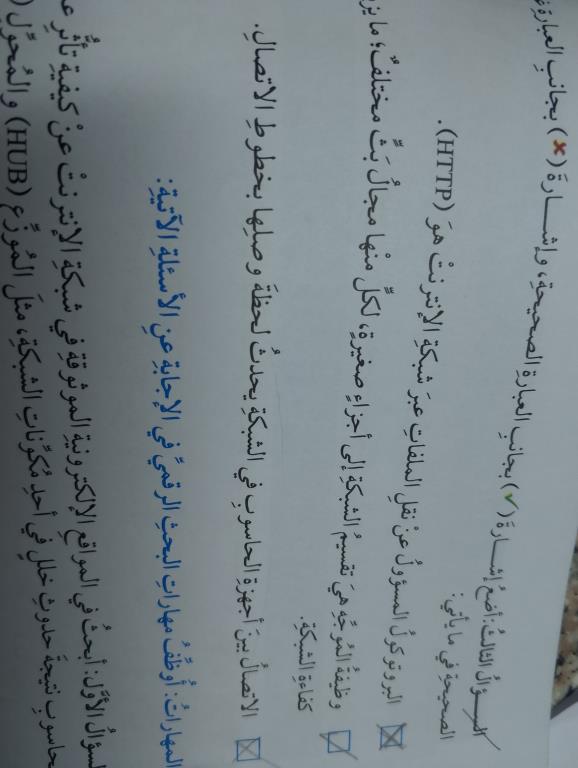 السؤالُ الثالثُ: أضعُ إشارةَ (✓) بجانبِ العبارةِ الصحيحةِ، وإشارةَ (✗) بجانبِ العبارةِ
الصحيحةِ في ما يأتي:
البروتوكولُ المسؤولُ عنْ نقلِ الملفاتِ عبرَ شبكةِ الإنترنتْ هوَ (HTTP).
وظيفةُ المُوجِّهِ هيَ تقسيمُ الشبكةِ إلى أجزاءٍ صغيرةٍ، لكلٍّ منْها مجالُ بَثٍّ مختلفٌ؛ ما
كفاءةِ الشبكةِ.
الاتصالُ بينَ أجهزةِ الحاسوبِ في الشبكةِ يحدثُ لحظةَ وصلِها بخطوطِ الاتصالِ.
المهاراتُ: أُوظِّفُ مهاراتِ البحثِ الرقميِّ في الإجابةِ عنِ الأسئلةِ الآتيةِ:
السؤالُ الأوَّلُ: أبحثُ في المواقعِ الإلكترونيةِ الموثوقةِ في شبكةِ الإنترنتْ عنْ كيفيةِ تأثُّرِ
حاسوبٍ نتيجةَ حدوثِ خللٍ في أحدِ مُكوِّناتِ الشبكةِ، مثلَ المُوزِّعِ (HUB) والمُحوِّلِ